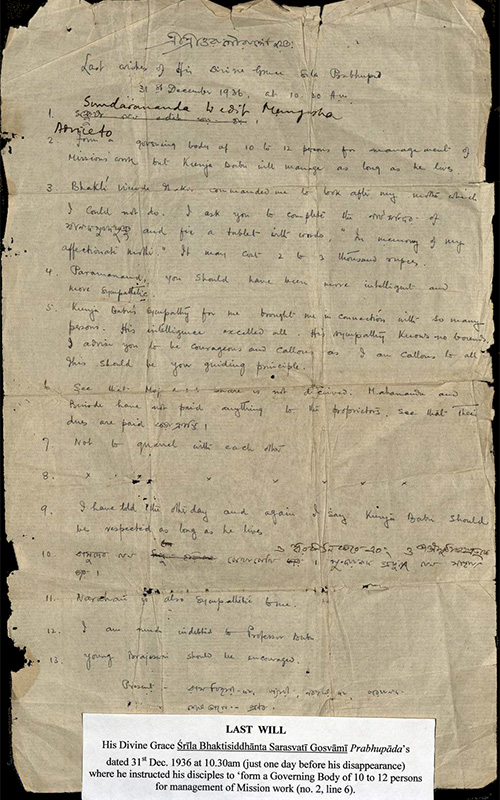 Last wishes of His Divine Grace Srila Prabhupad
31st December 1936, at 10.30 A.m.
1. Sundarananda to edit
2. Form a governing body of 10 to 12 persons for management of
Missions work but Kunja Babu will manage as long as he lives
3. Bhakti Vinode Thakur commanded me to look after my mother which
I could not do. I ask you to complete the of
and fix a tablet with words, "In memory of my
affectionate mother" It may cost 2 to 3 thousand rupees.
4. Paramanand, you should have been more intelligent and
more sympathetic
5. Kunja Babu's sympathy for me brought me in connection with so many
persons. His intelligence excelled all. His sympathy knows no bounds.
I advise you to be courageous and callous as I am callous to all
This should be your guiding principle.
6. See that is not deceived. Mahananda and
Binode have not paid anything to the proprietors, see that their
dues are paid
7. Not to quarrel with each other
8. x x x x x x x
9. I have told the other day and again I say Kunja Babu should
be respected as long as he lives
10.
11. Narahari is also sympathetic to me.
12. I am much indebted to Professor Babu.
13. Young Brajabasi should be encouraged.
Present -
LAST WILL
His Divine Grace Śrīla Bhaktisiddhānta Sarasvatī Gosvāmī Prabhupāda's
dated 31st Dec. 1936 at 10.30am (just one day before his disappearance)
where he instructed his disciples to 'form a Governing Body of 10 to 12 persons
for management of Mission work (no. 2, line 6).